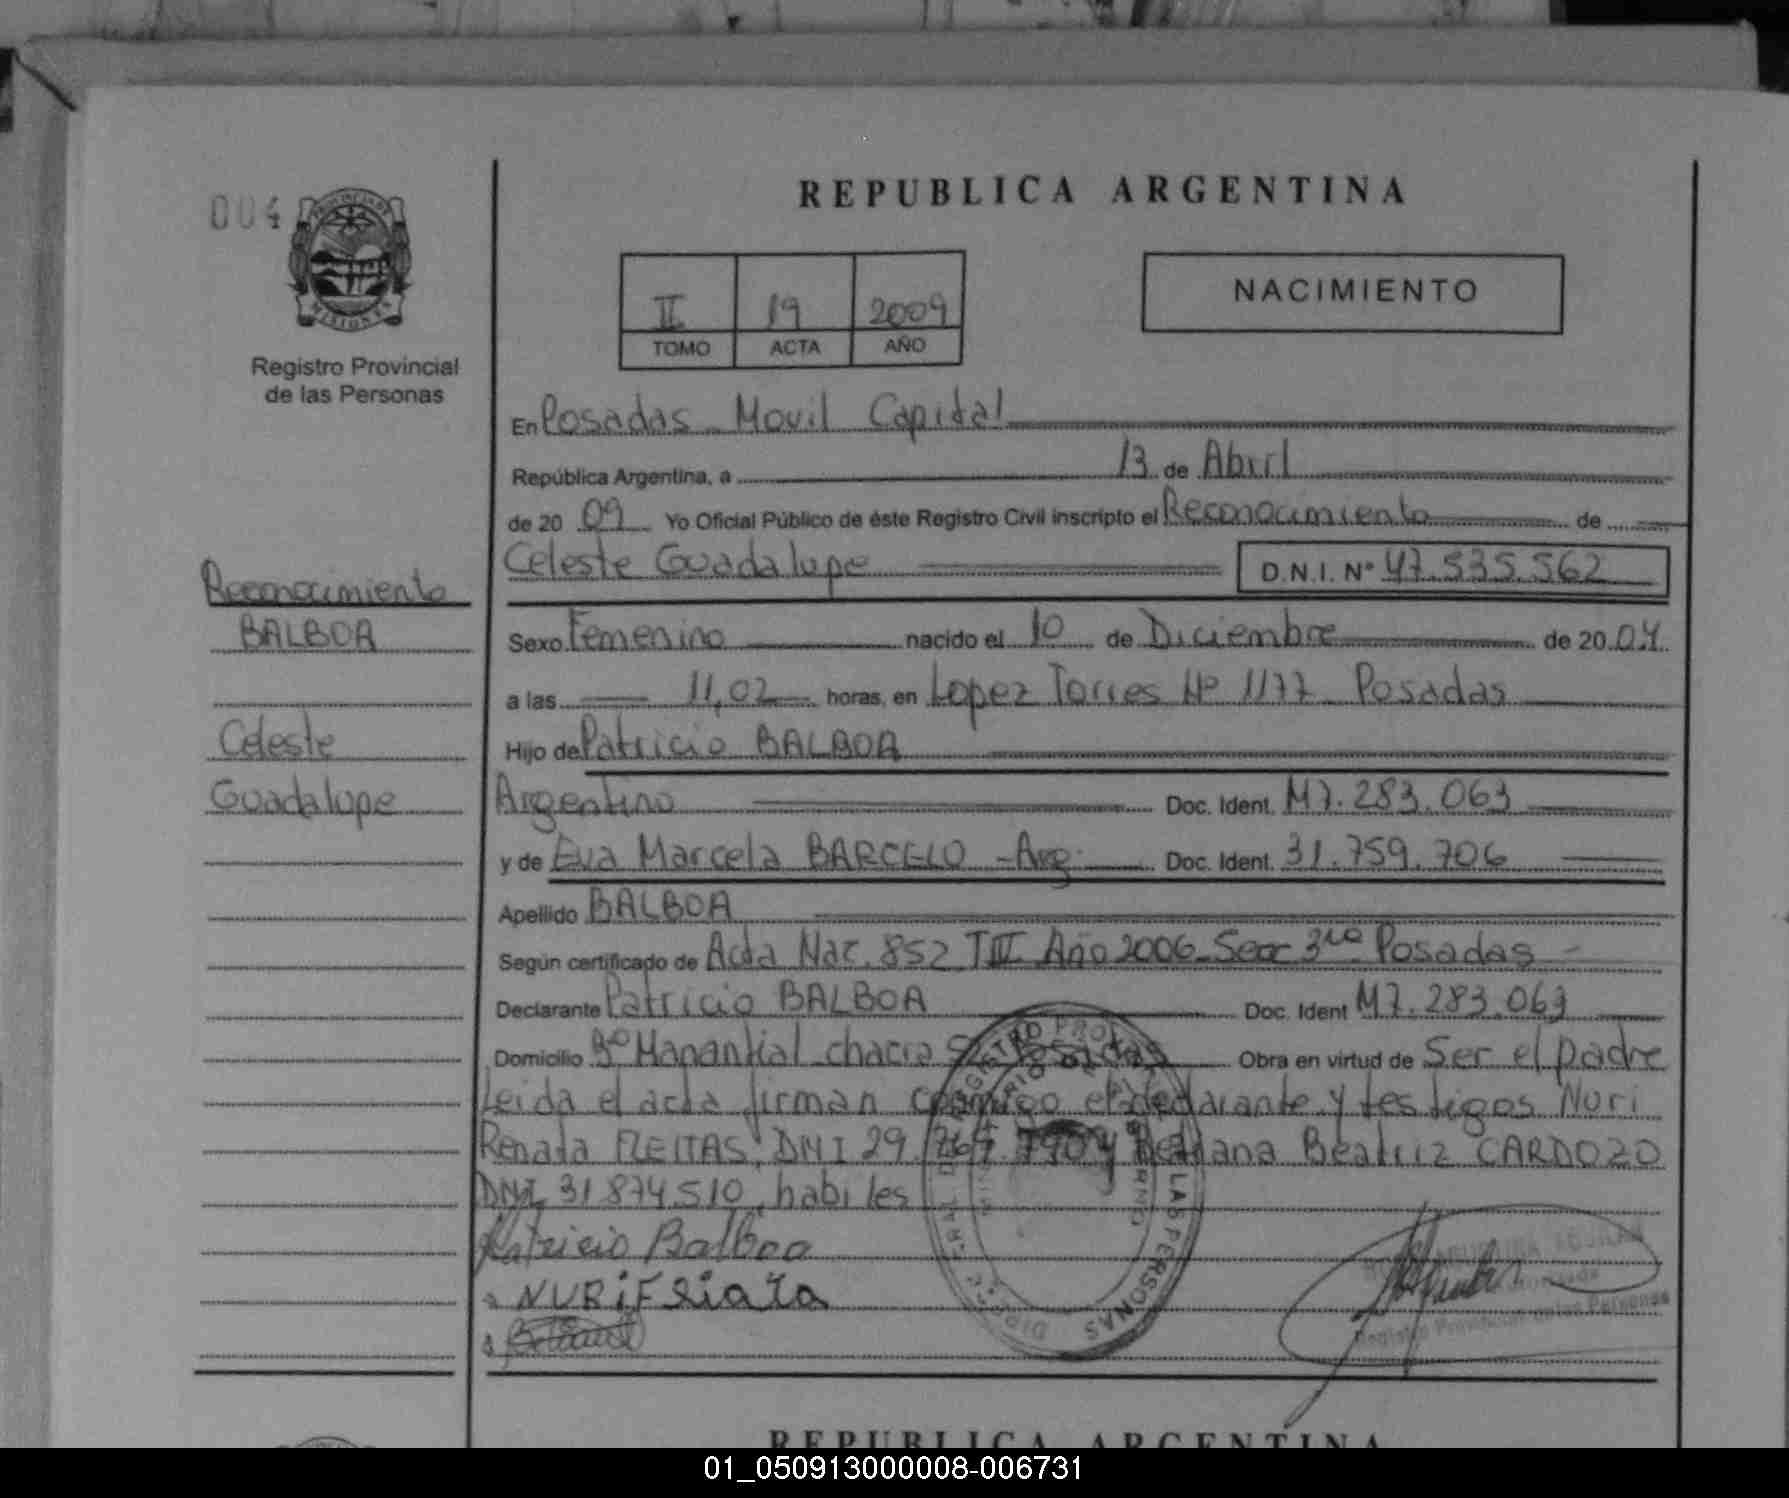 004
PROVINCIA DE
MISIONES
Registro Provincial
de las Personas
REPUBLICA ARGENTINA
II 19 2009
TOMO ACTA AÑO
NACIMIENTO
En Posadas Movil Capital
República Argentina, a 13 de Abril
de 20 09 Yo Oficial Público de éste Registro Civil inscripto el Reconocimiento de
Celeste Guadalupe D.N.I. Nº 47.535.562
Reconocimiento
BALBOA
Celeste
Guadalupe
Sexo Femenino nacido el 10 de Diciembre de 20 04
a las 11,02 horas, en Lopez Torres Nº 1177 Posadas
Hijo de Patricio BALBOA
Argentino Doc. Ident. M7.283.063
y de Eva Marcela BARCELO - Arg. Doc. Ident. 31.759.706
Apellido BALBOA
Según certificado de Acta Nac. 852 TIII Año 2006 Secc 3ra Posadas
Declarante Patricio BALBOA Doc. Ident M7.283.063
Domicilio Bº Manantial chacra Posadas Obra en virtud de Ser el padre
Leida el acta firman conmigo el declarante y testigos Nuri
Renata FLEITAS, DNI 29. Beatriz CARDOZO
DNI 31874510, habiles
Patricio Balboa
NURi
REGISTRO LAS PERSONAS
Registro Provincial de las Personas
REPUBLICA ARGENTINA
01_050913000008-006731